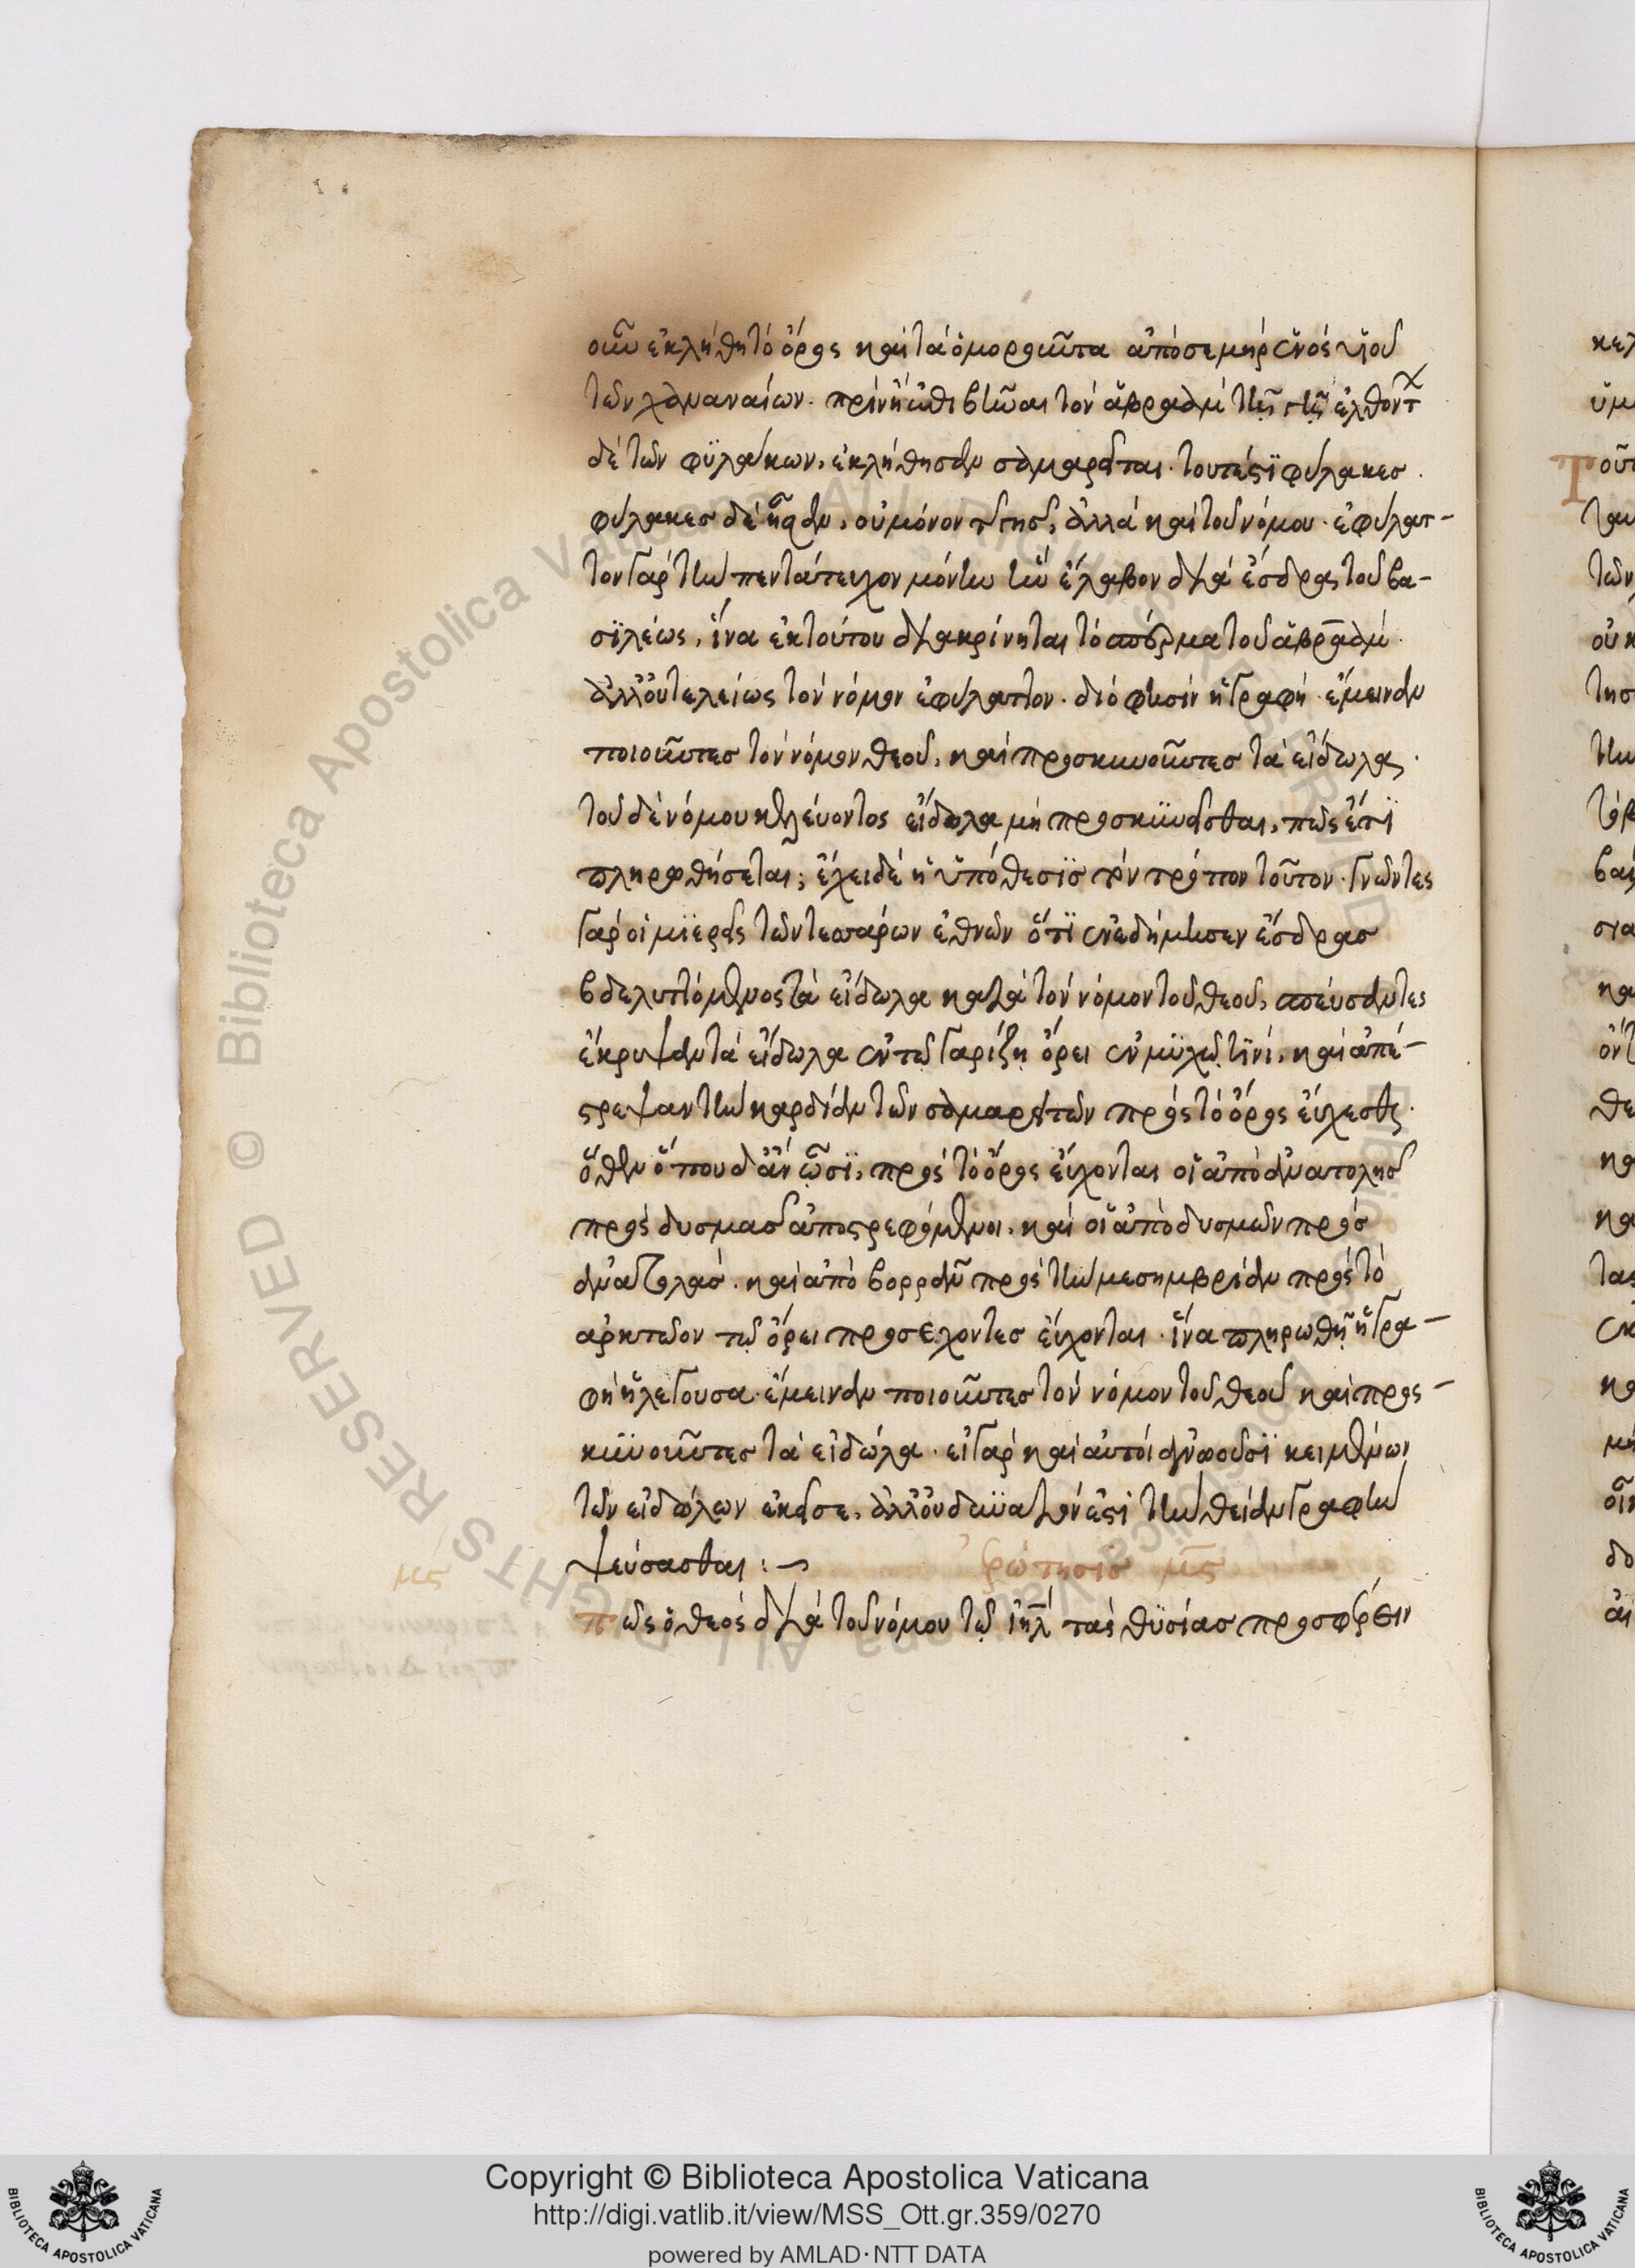 οὖν ἐκλήθη τὸ ὄρος καὶ τὰ ὁμοροῦντα ἀπὸ σεμὴρ ἑνὸς υἱοῦ
τῶν χαναναίων. πρὶν ἢ ἐπιβῶσαι τὸν ἀβραὰμ τῆς γῆς ἐλθόντ
δὲ τῶν φϋλάκων, ἐκλήθησαν σαμαρεῖται. τουτέστϊ φύλακες.
φύλακες δὲ ἦσαν, οὐ μόνον τῆς γῆς, ἀλλὰ καὶ τοῦ νόμου. ἐφύλατ-
τον γὰρ τὴν πεντάτευχον μόνην ἣν ἔλαβον διὰ ἔσδρα τοῦ βα-
σϊλέως, ἵνα ἐκ τούτου διακρίνηται τὸ σπέρμα τοῦ ἀβραὰμ.
ἀλλ' οὐ τελείως τὸν νόμον ἐφύλαττον. διό φησὶν ἡ γραφή. ἔμειναν
ποιοῦντες τὸν νόμον θεοῦ, καὶ προσκυνοῦντες τὰ εἴδωλα.
τοῦ δὲ νόμου κελεύοντος εἴδωλα μὴ προσκϋνεῖσθαι, πῶς ἔτϊ
πληρωθήσεται; ἔχει δὲ ἡ ὑπόθεσϊς τὸν τρόπον τοῦτον. γνῶντες
γὰρ οἱ μϊερεῖς τῶν τεσσάρων ἐθνῶν ὅτϊ ἐνεδήμησεν ἔσδρας
βδελυττόμενος τὰ εἴδωλα κατὰ τὸν νόμον τοῦ θεοῦ, σπεύσαντες
ἔκρυψαν τὰ εἴδωλα ἐν τῷ γαρίζη ὄρει ἐν μϋλῷ τϊνί, καὶ ἀπέ-
στρεψαν τὴν καρδίαν τῶν σαμαρειτῶν πρὸς τὸ ὄρος εὔχεσθαι.
ὅθεν ὅπου δ' ἂν ὦσϊ, πρὸς τὸ ὄρος εὔχονται οἱ ἀπὸ ἀνατολῆς
πρὸς δυσμὰς ἀποστρεφόμενοι, καὶ οἱ ἀπὸ δυσμῶν πρὸς
ἀνατολὰς. καὶ ἀπὸ βορρᾶν πρὸς τὴν μεσημβρίαν πρὸς τὸ
ἀρκτῶον τῷ ὄρει προσέχοντες εὔχονται. ἵνα πληρωθῇ ἡ γρα-
φὴ ἡ λέγουσα. ἔμειναν ποιοῦντες τὸν νόμον τοῦ θεοῦ καὶ προς-
κϋνοῦντες τὰ εἰδώλα. εἰ γὰρ καὶ αὐτοὶ ἀγνοοῦσϊ κειμένων
τῶν εἰδώλων ἐκεῖσε, ἀλλ' οὐ δϋνατόν ἐστὶ τὴν θείαν γραφὴν
ψεύσασθαι:
ἐρώτησις μϛ
μϛ
πῶς ὁ θεὸς διὰ τοῦ νόμου τῷ ἰηλ τὰς θϋσίας προσφέρειν
Copyright © Biblioteca Apostolica Vaticana
http://digi.vatlib.it/view/MSS_Ott.gr.359/0270
powered by AMLAD·NTT DATA